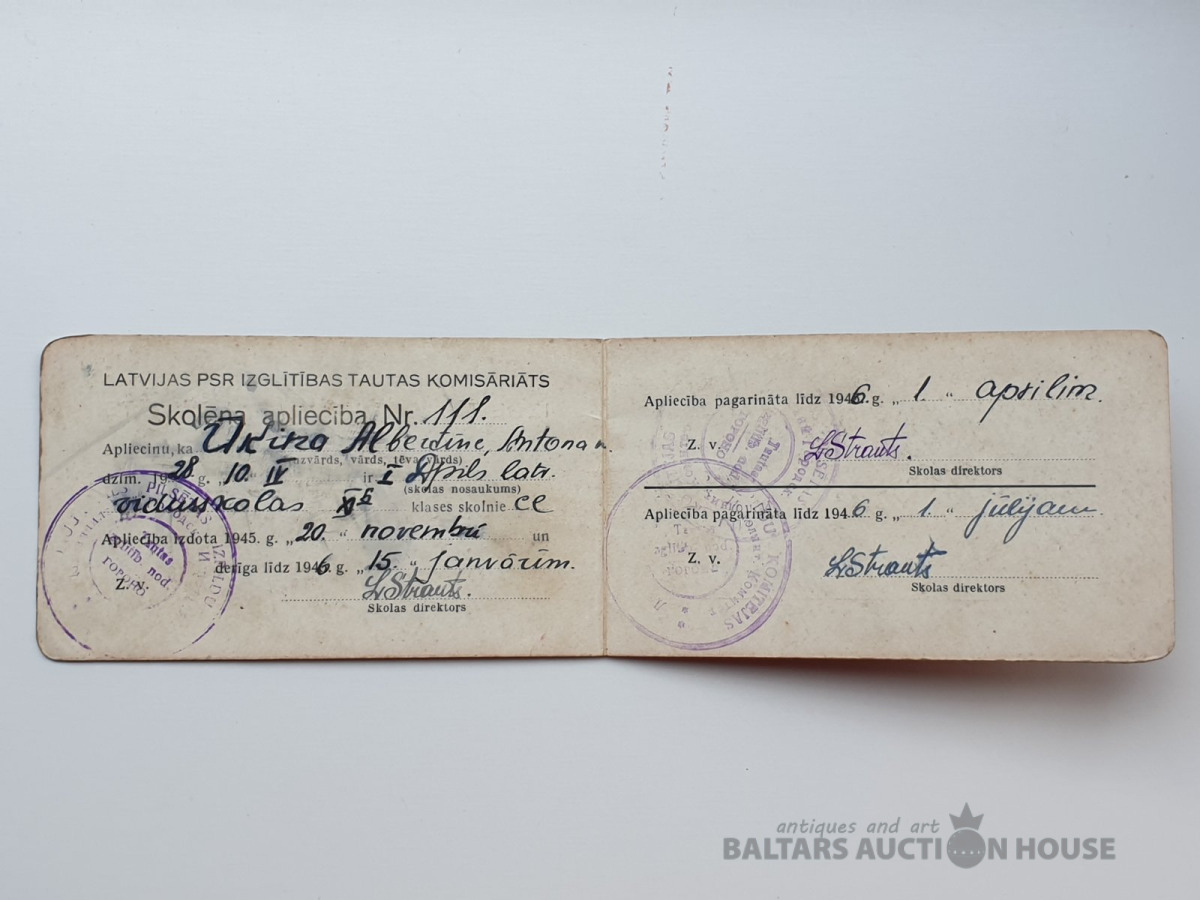 LATVIJAS PSR IZGLĪTĪBAS TAUTAS KOMISĀRIĀTS
Skolēna apliecība Nr. 111.
Apliecinu, ka Albertine, Antona m.
(uzvārds, vārds, tēva vārds)
dzim. 1928 g. „10. IV ir I L/pils latv.
(skolas nosaukums)
vidusskolas klases skolnie ce
Apliecība izdota 1945. g. „20. “ novembrī un
derīga līdz 1946. g. „15. “ janvārim.
L Strauts.
Skolas direktors
Z. v.
Apliecība pagarināta līdz 1946. g. „1. “ aprilim.
Z. v. L Strauts.
Skolas direktors
Apliecība pagarināta līdz 1946 g. „1. “ jūlijam.
Z. v. L Strauts
Skolas direktors
PILSĒTAS IZPILDU
KOMITEJAS
nod.
ГОРОНО
antiques and art
BALTARS AUCTION HOUSE